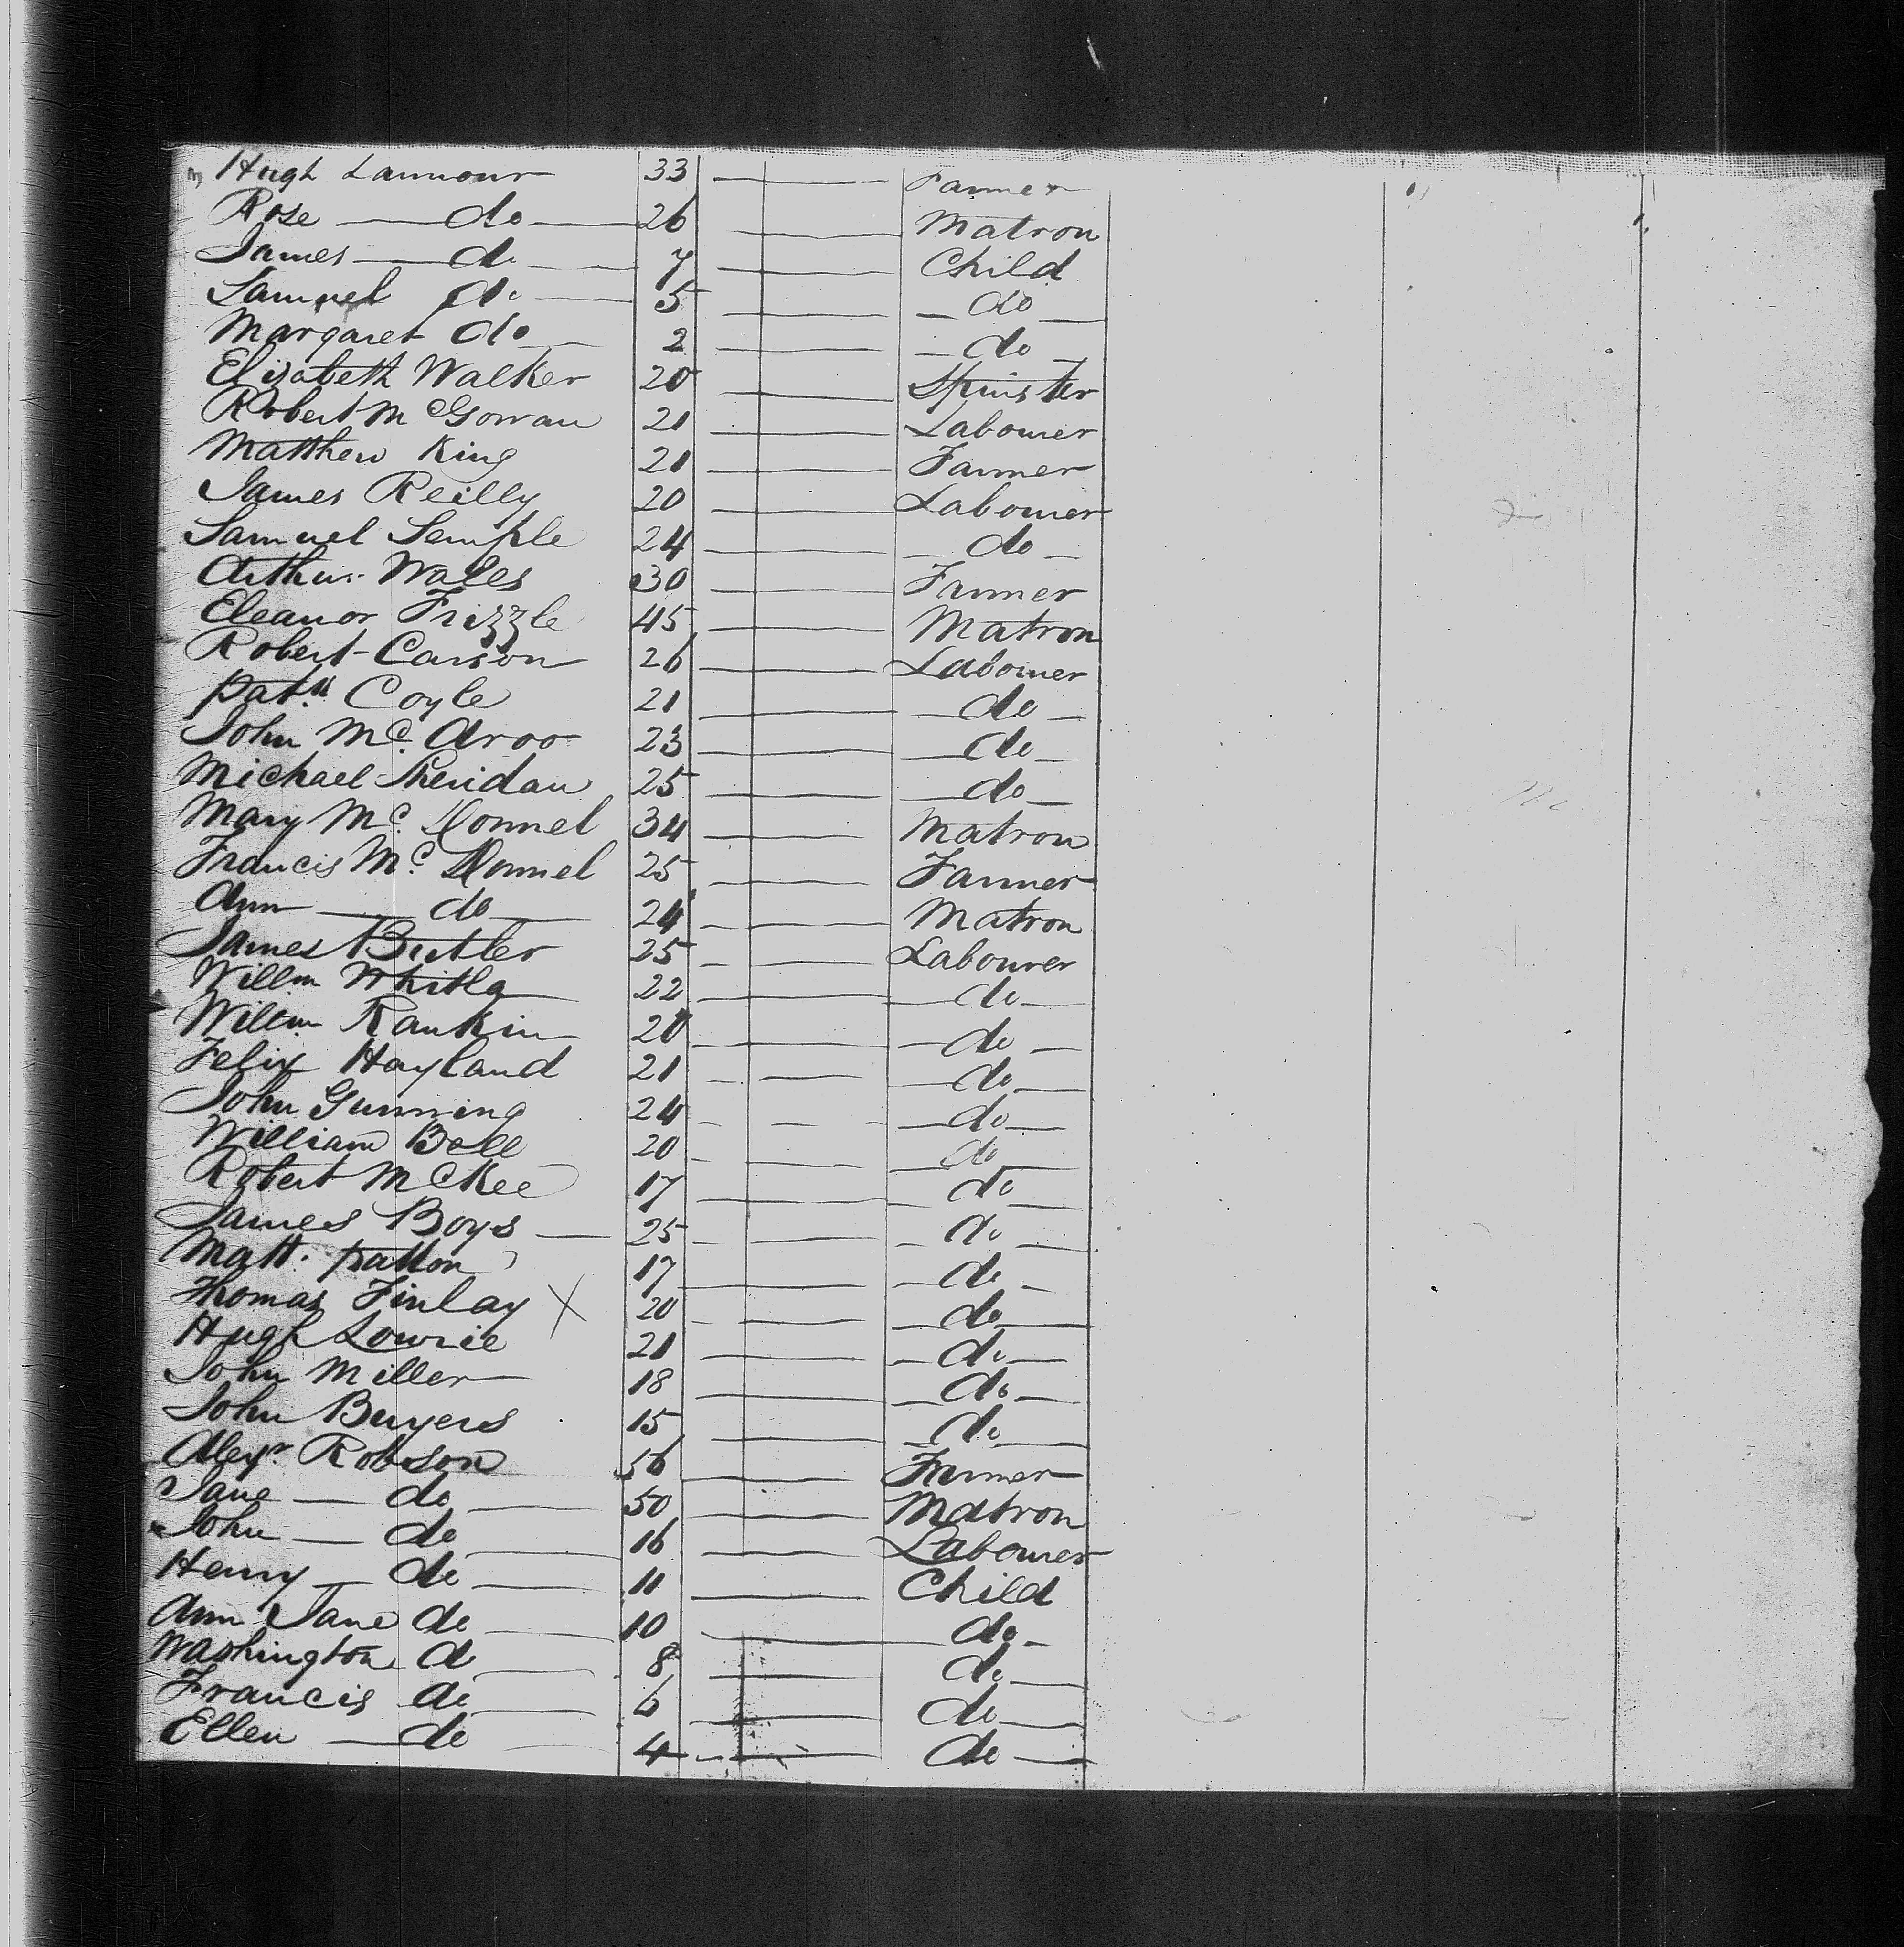 Hugh Lammour 33 Farmer
Rose do 26 Matron
James do 7 Child
Samuel do 5 do
Margaret do 2 do
Elizabeth Walker 20 Spinster
Robert McGowan 21 Labourer
Matthew King 21 Farmer
James Reilly 20 Labourer
Samuel Semple 24 do
Arthur Wales 30 Farmer
Eleanor Frizzle 45 Matron
Robert Carson 26 Labourer
Patk Coyle 21 do
John Mc Aroo 23 do
Michael Sheridan 25 do
Mary Mc Donnel 34 Matron
Francis Mc Donnel 25 Farmer
Ann do 24 Matron
James Butler 25 Labourer
Willm Whitla 22 do
Willm Rankin 20 do
Felix Hayland 21 do
John Gunning 24 do
William Bell 20 do
Robert McKee 17 do
James Boys 25 do
Matt. Patton 17 do
Thomas Finlay X 20 do
Hugh Lowrie 21 do
John Miller 18 do
John Buyers 15 do
Alexr Robson 56 Farmer
Jane do 50 Matron
John do 16 Labourer
Henry do 11 Child
Ann Jane do 10 do
Washington do 8 do
Francis do 6 do
Ellen do 4 do